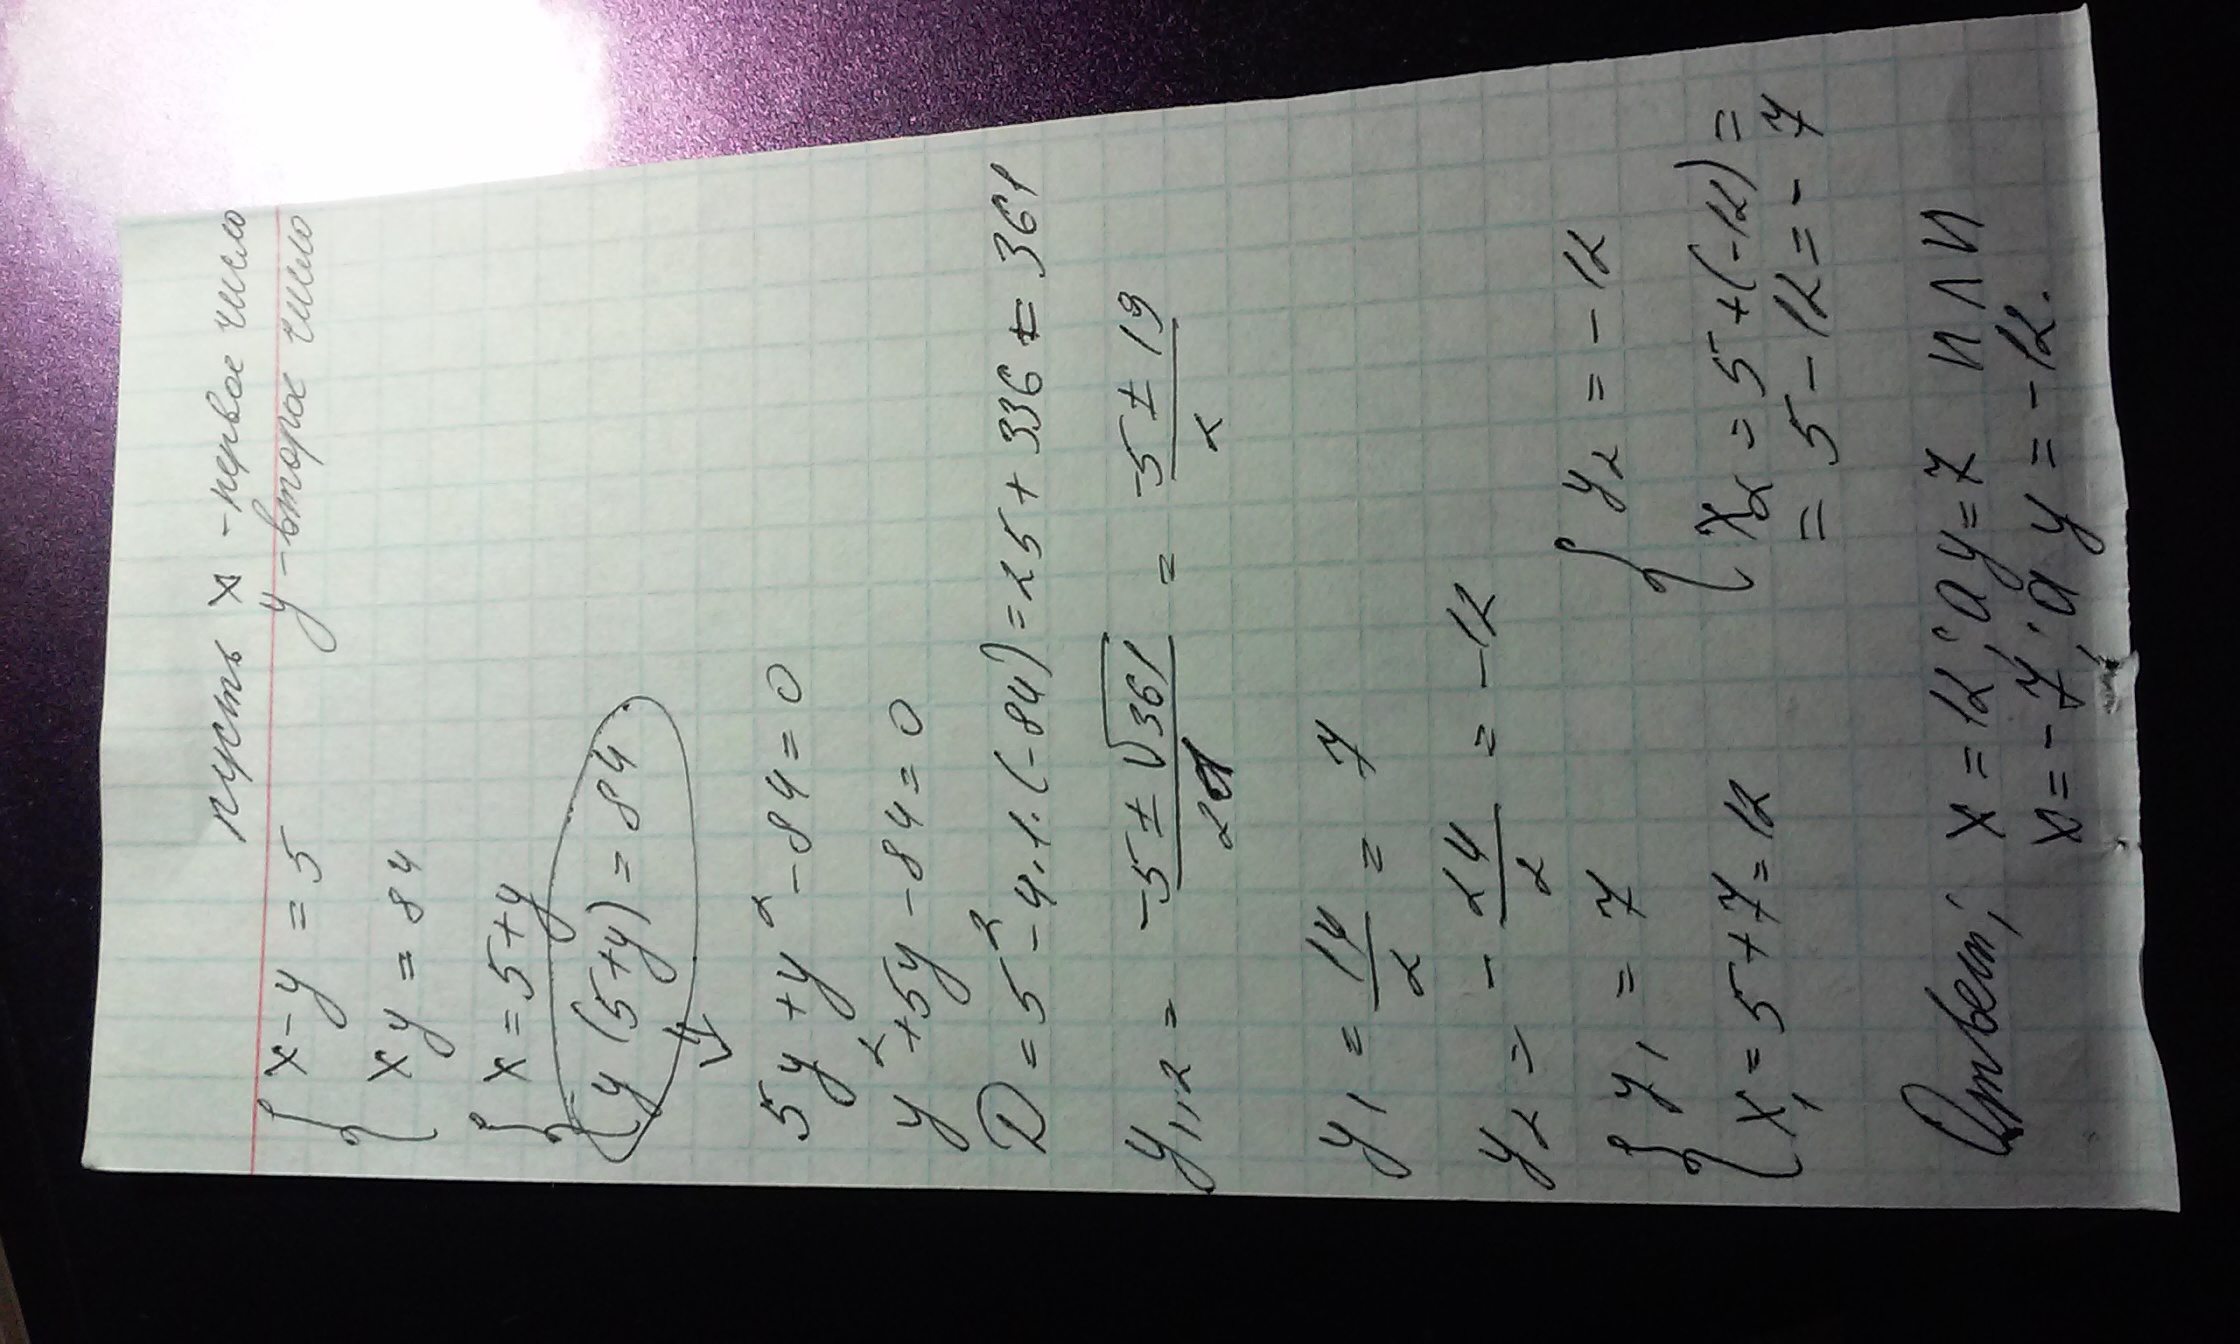 пусть x - первое число
y - второе число
{ x - y = 5
xy = 84
{ x = 5 + y
y (5+y) = 84
5y + y² - 84 = 0
y² + 5y - 84 = 0
D = 5² - 4·1·(-84) = 25 + 336 = 361
y₁,₂ = (-5 ± √361)/2 = (-5 ± 19)/2
y₁ = 14/2 = 7
y₂ = - 24/2 = -12
{ y₁ = 7
x₁ = 5 + 7 = 12
{ y₂ = -12
x₂ = 5 + (-12) =
= 5 - 12 = -7
Ответ; x = 12, а y = 7 или
x = -7, а y = -12.